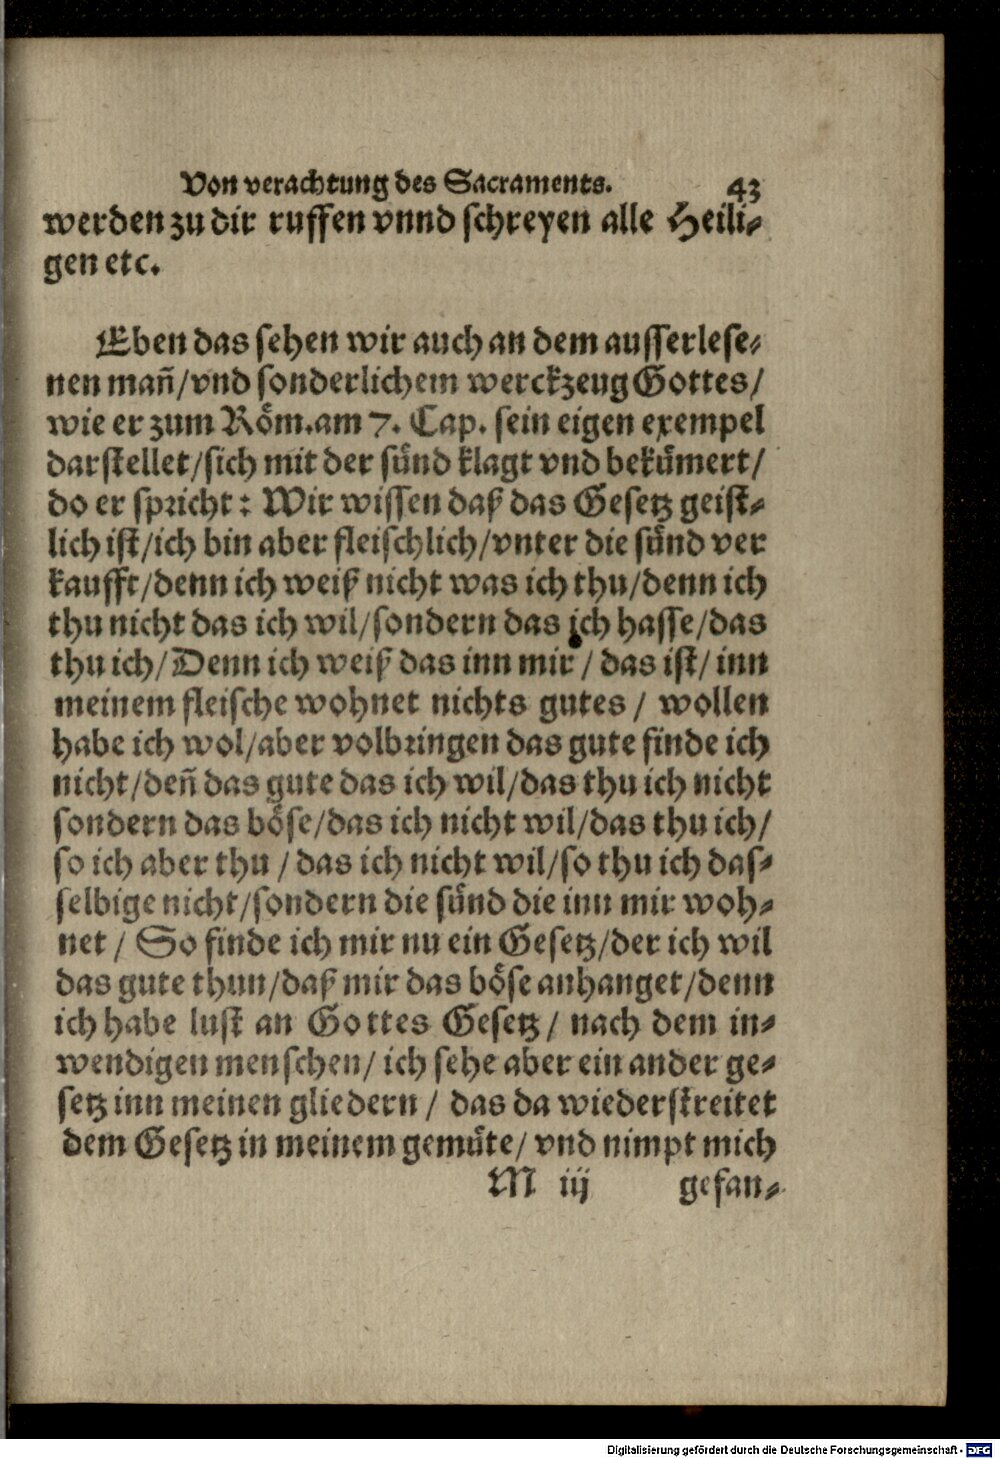 Von verachtung des Sacraments. 43
werden zu dir ruffen vnnd schreyen alle Heili-
gen etc.
Eben das sehen wir auch an dem ausserlese-
nen mañ/vnd sonderlichem werckzeug Gottes/
wie er zum Röm.am 7. Cap. sein eigen exempel
darstellet/sich mit der sünd klagt vnd bekümert/
do er spricht: Wir wissen daß das Gesetz geist-
lich ist/ich bin aber fleischlich/vnter die sünd ver
kaufft/denn ich weiß nicht was ich thu/denn ich
thu nicht das ich wil/sondern das ich hasse/das
thu ich/Denn ich weiß das inn mir/ das ist/ inn
meinem fleische wohnet nichts gutes/ wollen
habe ich wol/aber volbringen das gute finde ich
nicht/deñ das gute das ich wil/das thu ich nicht
sondern das böse/das ich nicht wil/das thu ich/
so ich aber thu / das ich nicht wil/so thu ich das-
selbige nicht/sondern die sünd die inn mir woh-
net / So finde ich mir nu ein Gesetz/der ich wil
das gute thun/daß mir das böse anhanget/denn
ich habe lust an Gottes Gesetz/ nach dem in-
wendigen menschen/ ich sehe aber ein ander ge-
setz inn meinen gliedern / das da wiederstreitet
dem Gesetz in meinem gemüte/ vnd nimpt mich
M iij gefan-
Digitalisierung gefördert durch die Deutsche Forschungsgemeinschaft - DFG